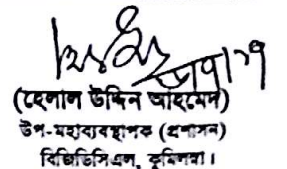 (হেলাল উদ্দিন আহমেদ)
উপ-মহাব্যবস্থাপক (প্রশাসন)
বিজিডিসিএল, কুমিল্লা।